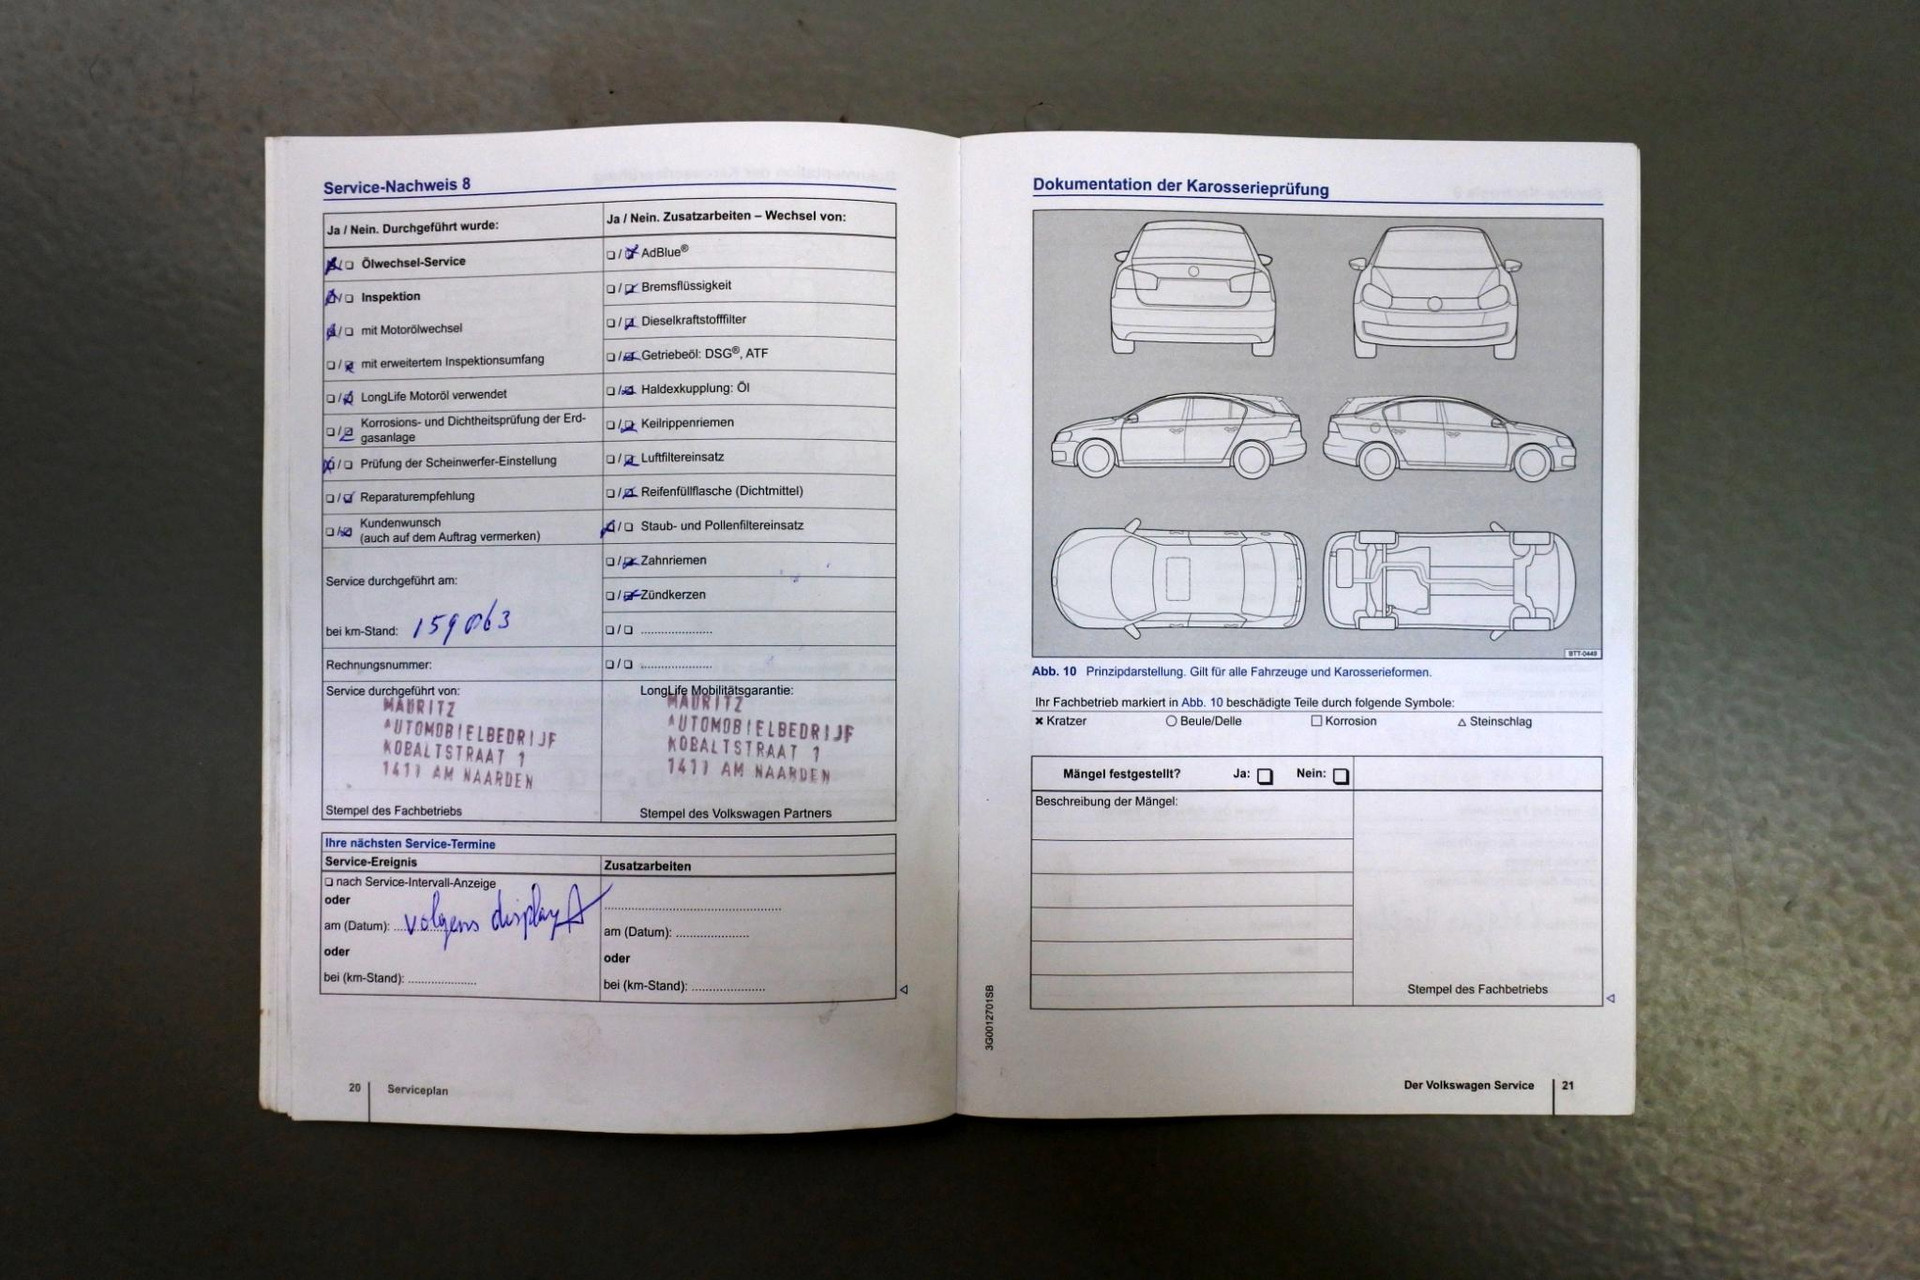 Service-Nachweis 8
Ja / Nein. Durchgeführt wurde:
Ölwechsel-Service
Inspektion
mit Motorölwechsel
mit erweitertem Inspektionsumfang
LongLife Motoröl verwendet
Korrosions- und Dichtheitsprüfung der Erd-
gasanlage
Prüfung der Scheinwerfer-Einstellung
Reparaturempfehlung
Kundenwunsch
(auch auf dem Auftrag vermerken)
Service durchgeführt am:
bei km-Stand: 159063
Rechnungsnummer:
Service durchgeführt von:
MAURITZ
AUTOMOBIELBEDRIJF
KOBALTSTRAAT 1
1411 AM NAARDEN
Stempel des Fachbetriebs
Ja / Nein. Zusatzarbeiten – Wechsel von:
AdBlue®
Bremsflüssigkeit
Dieselkraftstofffilter
Getriebeöl: DSG®, ATF
Haldexkupplung: Öl
Keilrippenriemen
Luftfiltereinsatz
Reifenfüllflasche (Dichtmittel)
Staub- und Pollenfiltereinsatz
Zahnriemen
Zündkerzen
LongLife Mobilitätsgarantie:
MAURITZ
AUTOMOBIELBEDRIJF
KOBALTSTRAAT 1
1411 AM NAARDEN
Stempel des Volkswagen Partners
Ihre nächsten Service-Termine
Service-Ereignis
nach Service-Intervall-Anzeige
oder
am (Datum): volgens display
oder
bei (km-Stand):
Zusatzarbeiten
am (Datum):
oder
bei (km-Stand):
20 Serviceplan
Dokumentation der Karosserieprüfung
BTT-0449
Abb. 10 Prinzipdarstellung. Gilt für alle Fahrzeuge und Karosserieformen.
Ihr Fachbetrieb markiert in Abb. 10 beschädigte Teile durch folgende Symbole:
✖ Kratzer ○ Beule/Delle □ Korrosion △ Steinschlag
Mängel festgestellt? Ja: Nein:
Beschreibung der Mängel:
Stempel des Fachbetriebs
3G0012701SB
Der Volkswagen Service 21